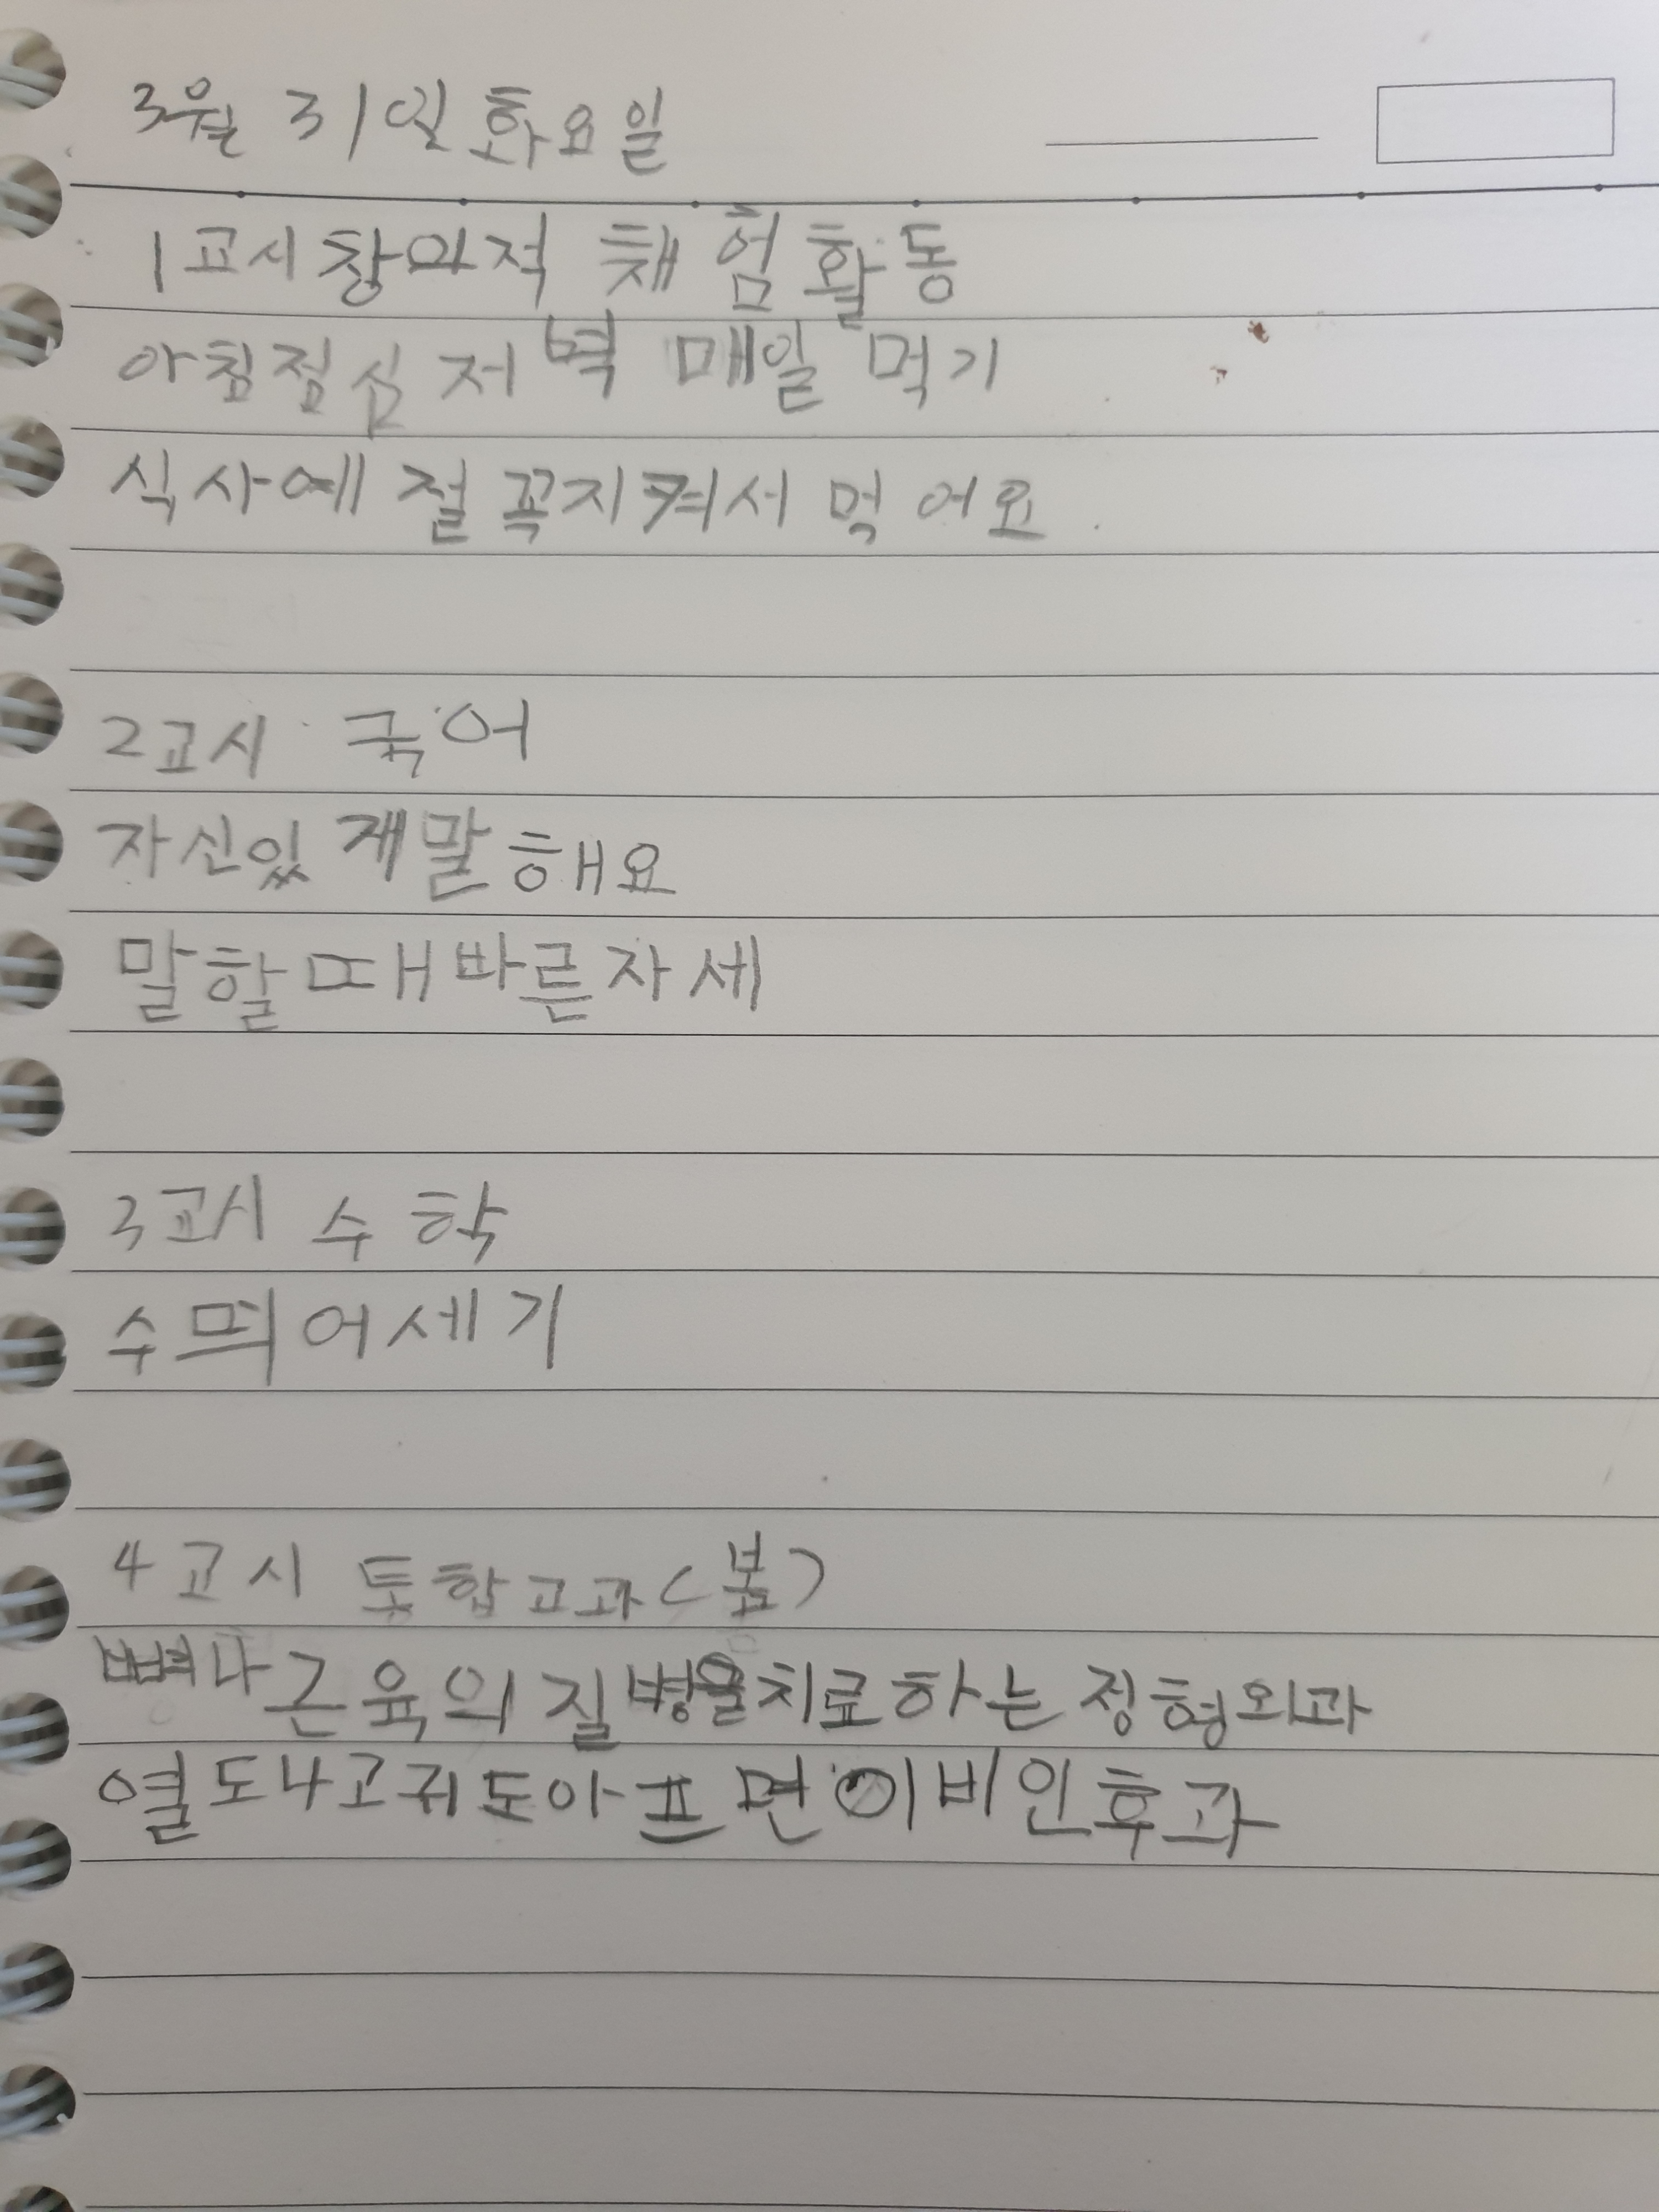 3월 31일 화요일
1교시 창의적 채험활동
아침점심 저벅 매일 먹기
식사에 절 꼭지켜서 먹어요
2교시 국어
자신있 게말해요
말할때바른자세
3교시 수학
수띄어세기
4교시 통합교과(봄)
뼈나근육의 질병을치료하는 정형외과
열도나고귀도아프면 이비인후과